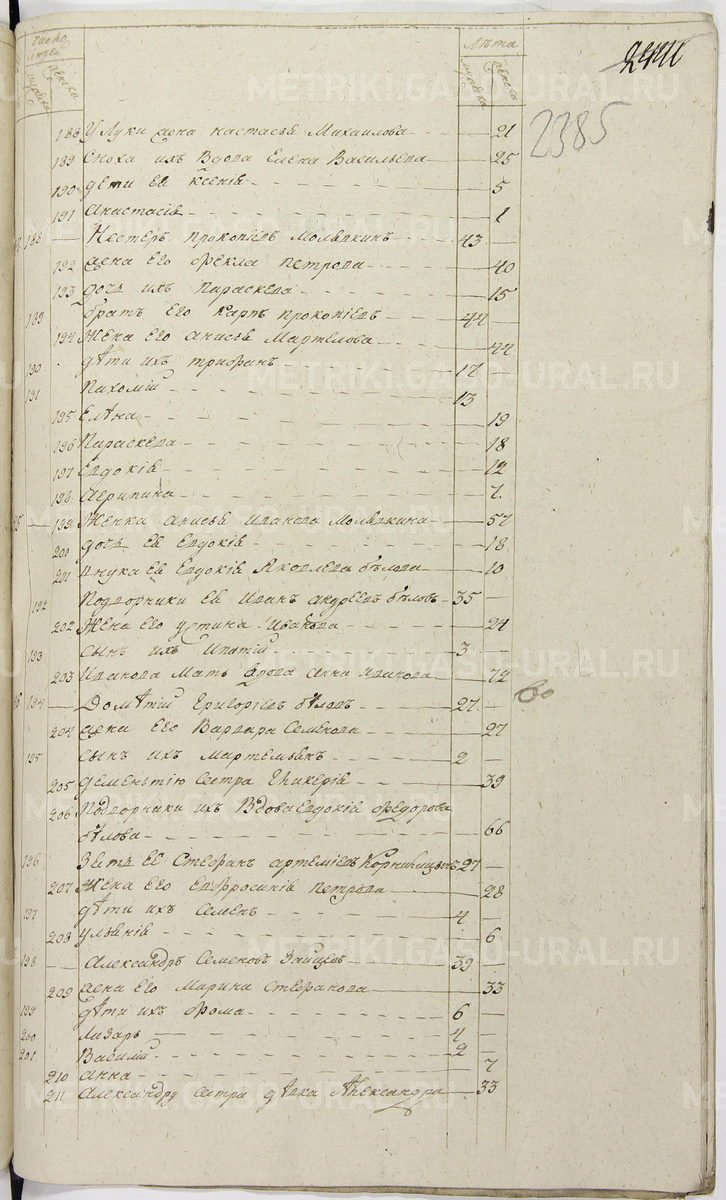 Число людей
мужеска
женска
Лѣта
мужеска
женска
2385
188 У Луки жена Настасья Михаилова 21
189 Сноха ихъ вдова Елена Васильева 25
190 дети ее Ксения 5
191 Анистасія 1
188 Нестеръ Прокопіевъ Молявкинъ 43
192 жена его Фекла Петрова 40
193 дочь ихъ Параскева 15
189 братъ его Карпъ Прокопіевъ 44
194 Жена его Анисья Мартелова 44
190 дѣти ихъ Трифанъ 17
191 Пахомій 13
195 Елѣна 19
196 Параскева 18
197 Евдокія 12
198 Агрипина 7
199 Женка Анисья Иванова Молявкина 57
200 дочь ее Евдокія 18
201 внука ее Евдокія Яковлева Бѣлова 10
192 Подворники ее Иванъ Андреевъ Бѣловъ 35
202 Жена его Устина Иванова 24
193 сынъ ихъ Ипатій 3
203 Иванова мать вдова Анна Иванова 72
194 Домѣтій Григорьевъ Бѣловъ 27
60
204 жена его Варвара Семенова 27
195 сынъ ихъ Мартемьянъ 2
205 Дементію сестра Гликерія 39
206 Подворники ихъ вдова Евдокія Федорова
Бѣлова 66
196 Зять ее Стефанъ Артеміевъ 27
207 Жена его Евфросинія Петрова 28
197 дѣти ихъ Семенъ 4
208 Ульянія 6
198 Александръ Семеновъ Зайцевъ 39
209 жена его Марина Стефанова 33
199 дѣти ихъ Фома 6
200 Лазарь 4
201 Василій 2
210 Анна 7
211 Александру сестра дѣвка Александра 33
METRIKI.GASO-URAL.RU